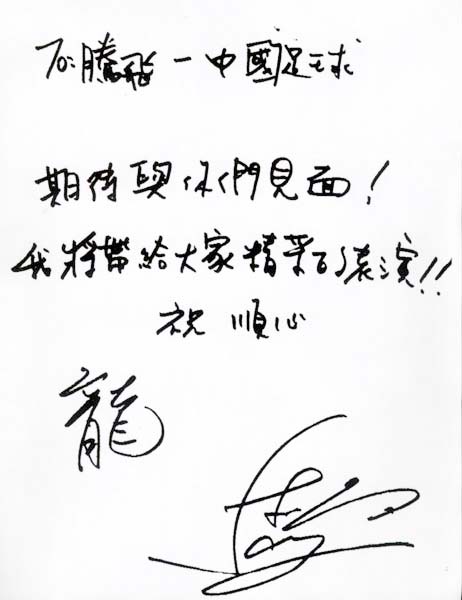 To: 騰飛一中國足球
期待與你們見面!
我將帶給大家精采的表演!!
祝 順心
龍